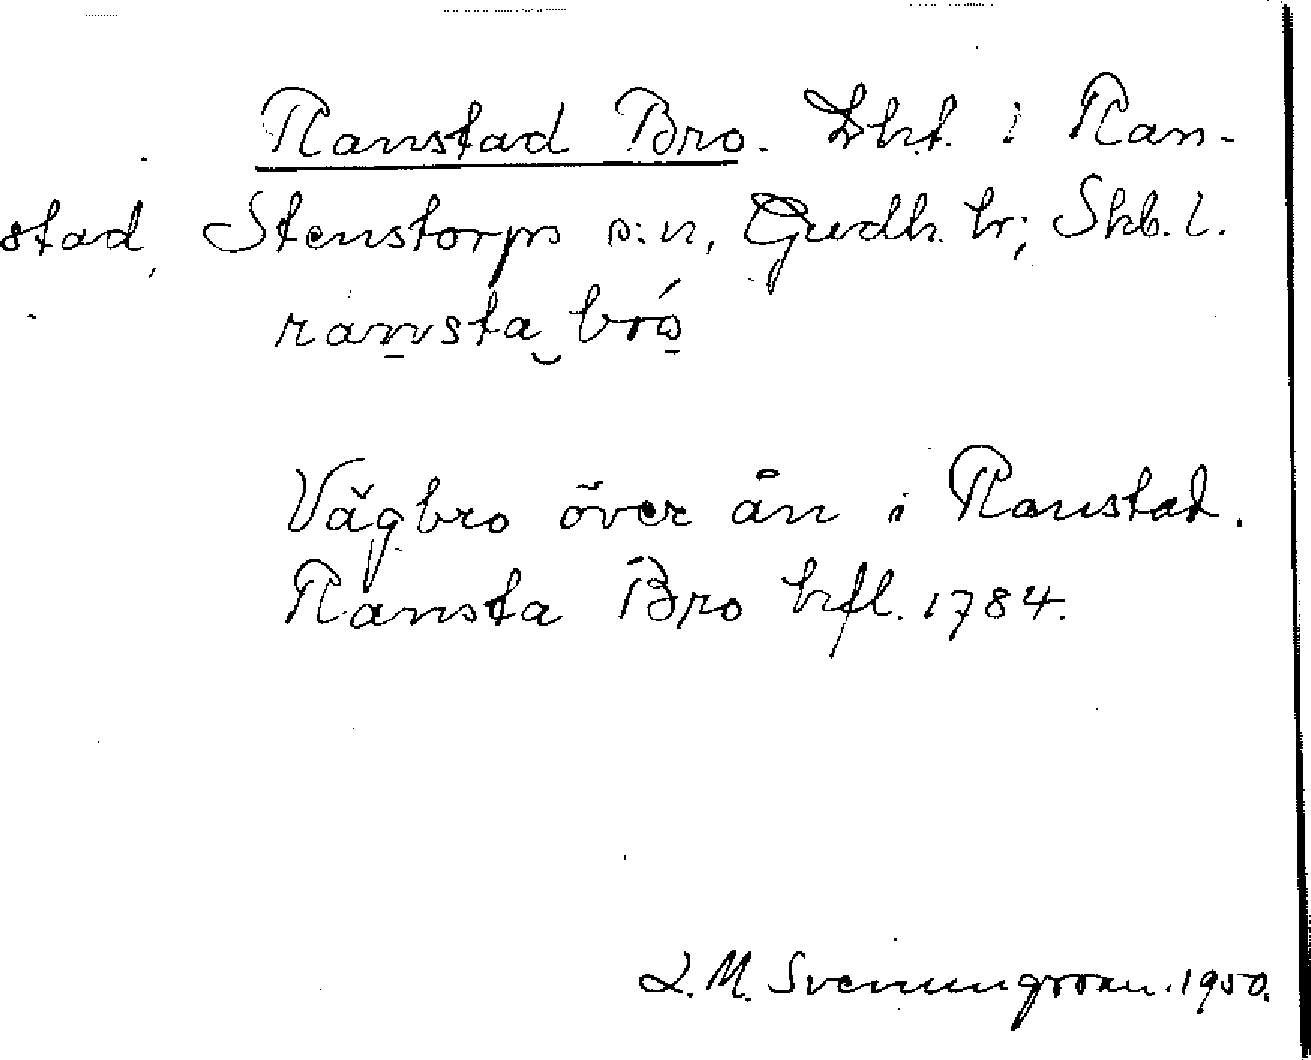 Ranstad Bro. Lht. i Ran-
stad, Stenstorps s:n, Gudh. hr; Skb. l.
ransta bró
Vägbro över ån i Ranstad.
Ransta Bro hfl. 1784.
L. M. Svenungsson. 1950.